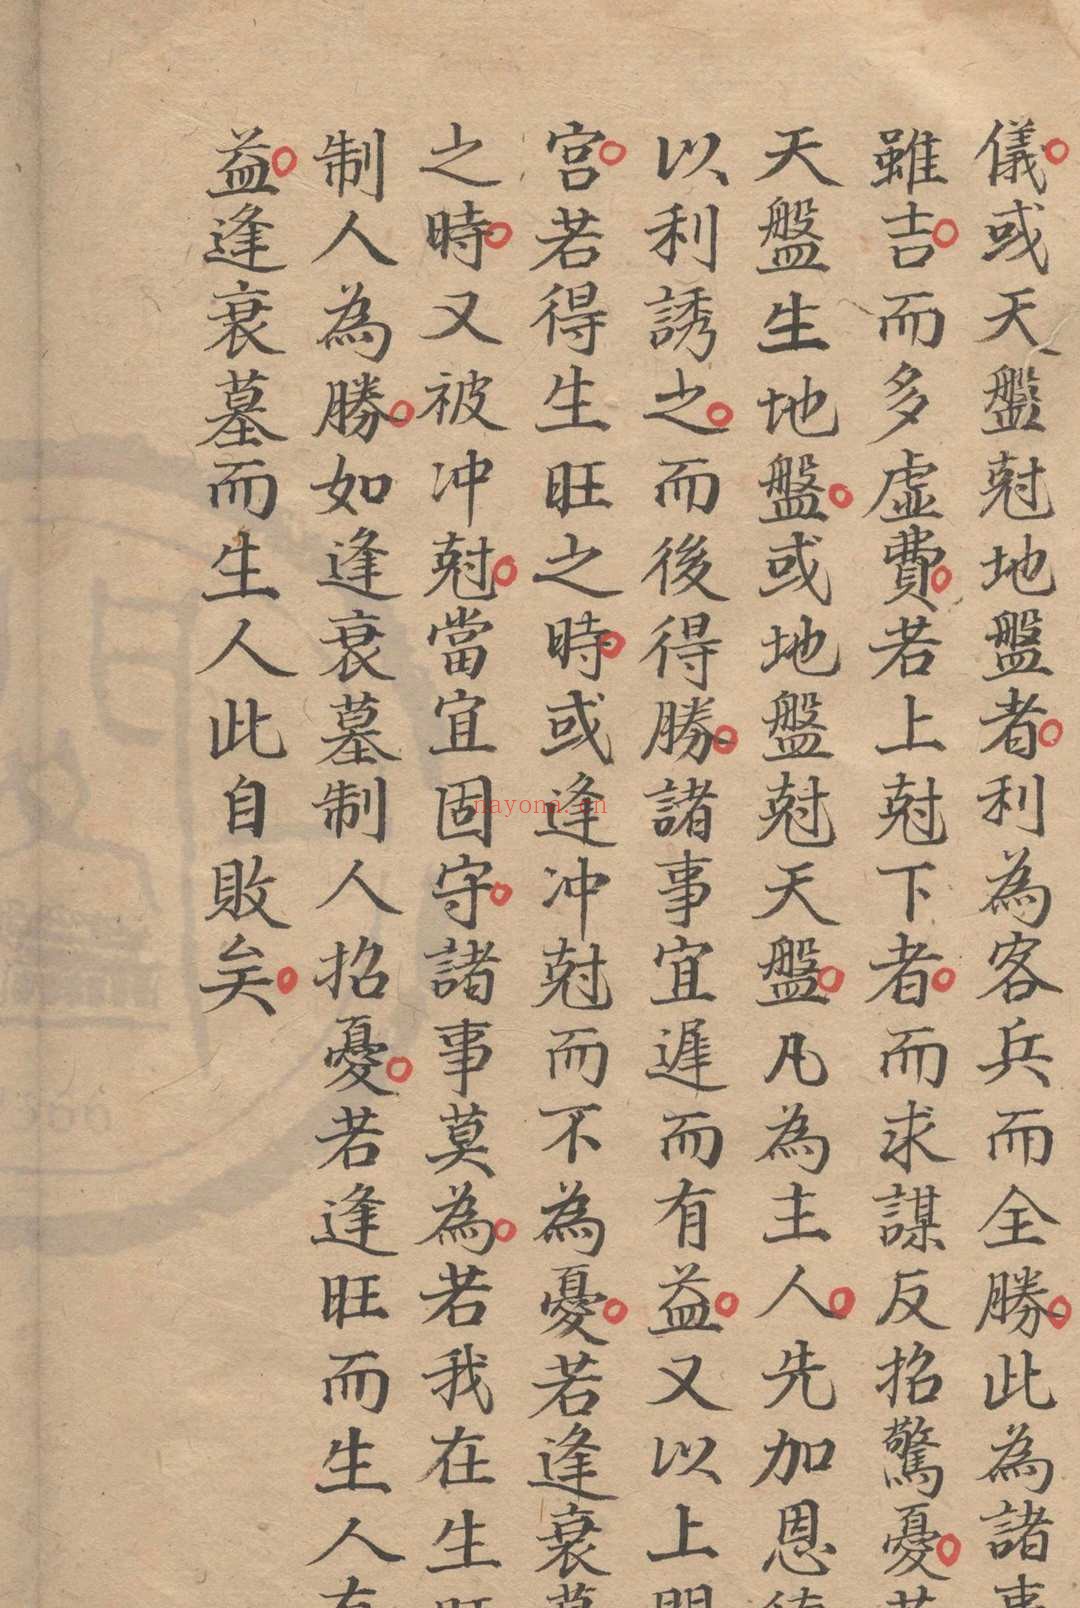 儀或天盤尅地盤者利為客兵而全勝此為諸事
雖吉而多虛費若上尅下者而求謀反招驚憂若
天盤生地盤或地盤尅天盤凡為主人先加恩德
以利誘之而後得勝諸事宜遲而有益又以上門
宮若得生旺之時或逢冲尅而不為憂若逢衰墓
之時又被冲尅當宜固守諸事莫為若我在生旺
制人為勝如逢衰墓制人招憂若逢旺而生人有
益逢衰墓而生人此自敗矣
nayona.cn